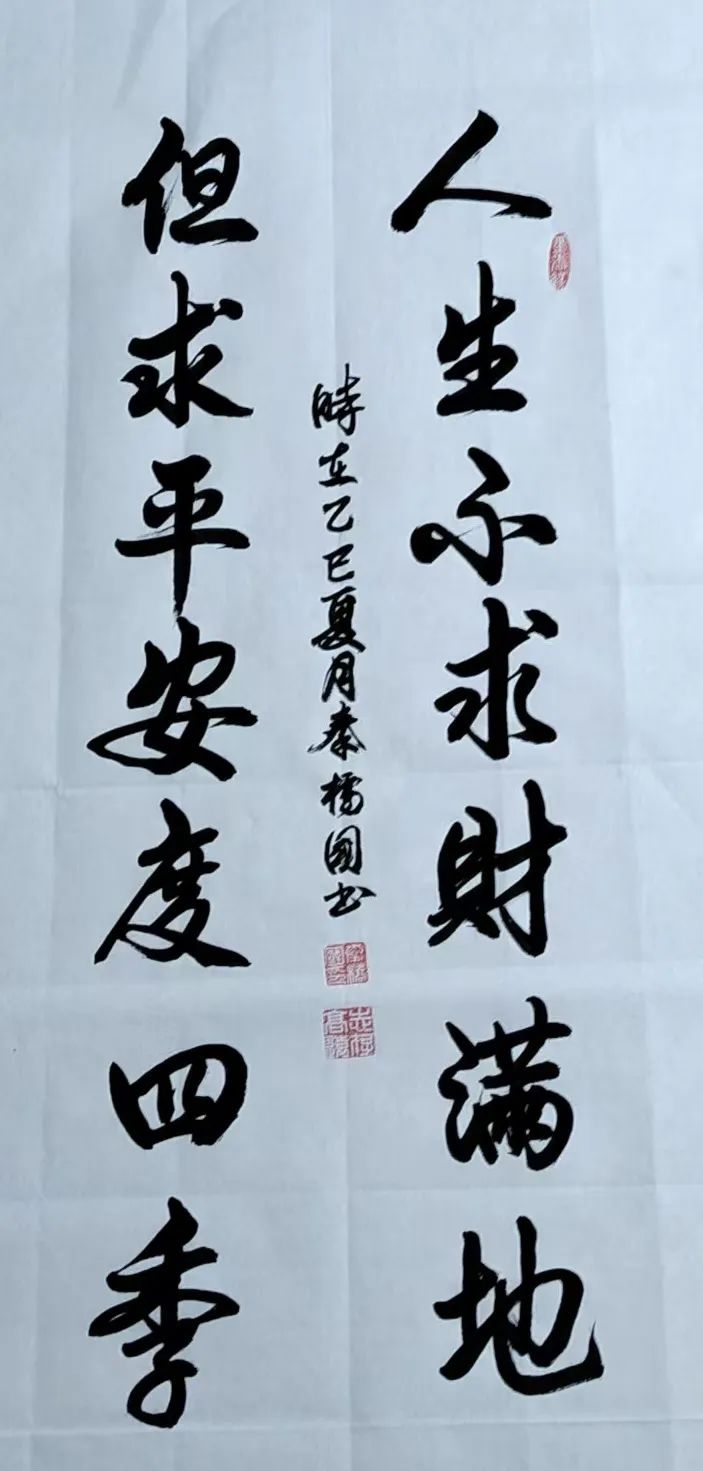 人生不求財滿地
但求平安度四季
時在乙巳夏月秦橋國书